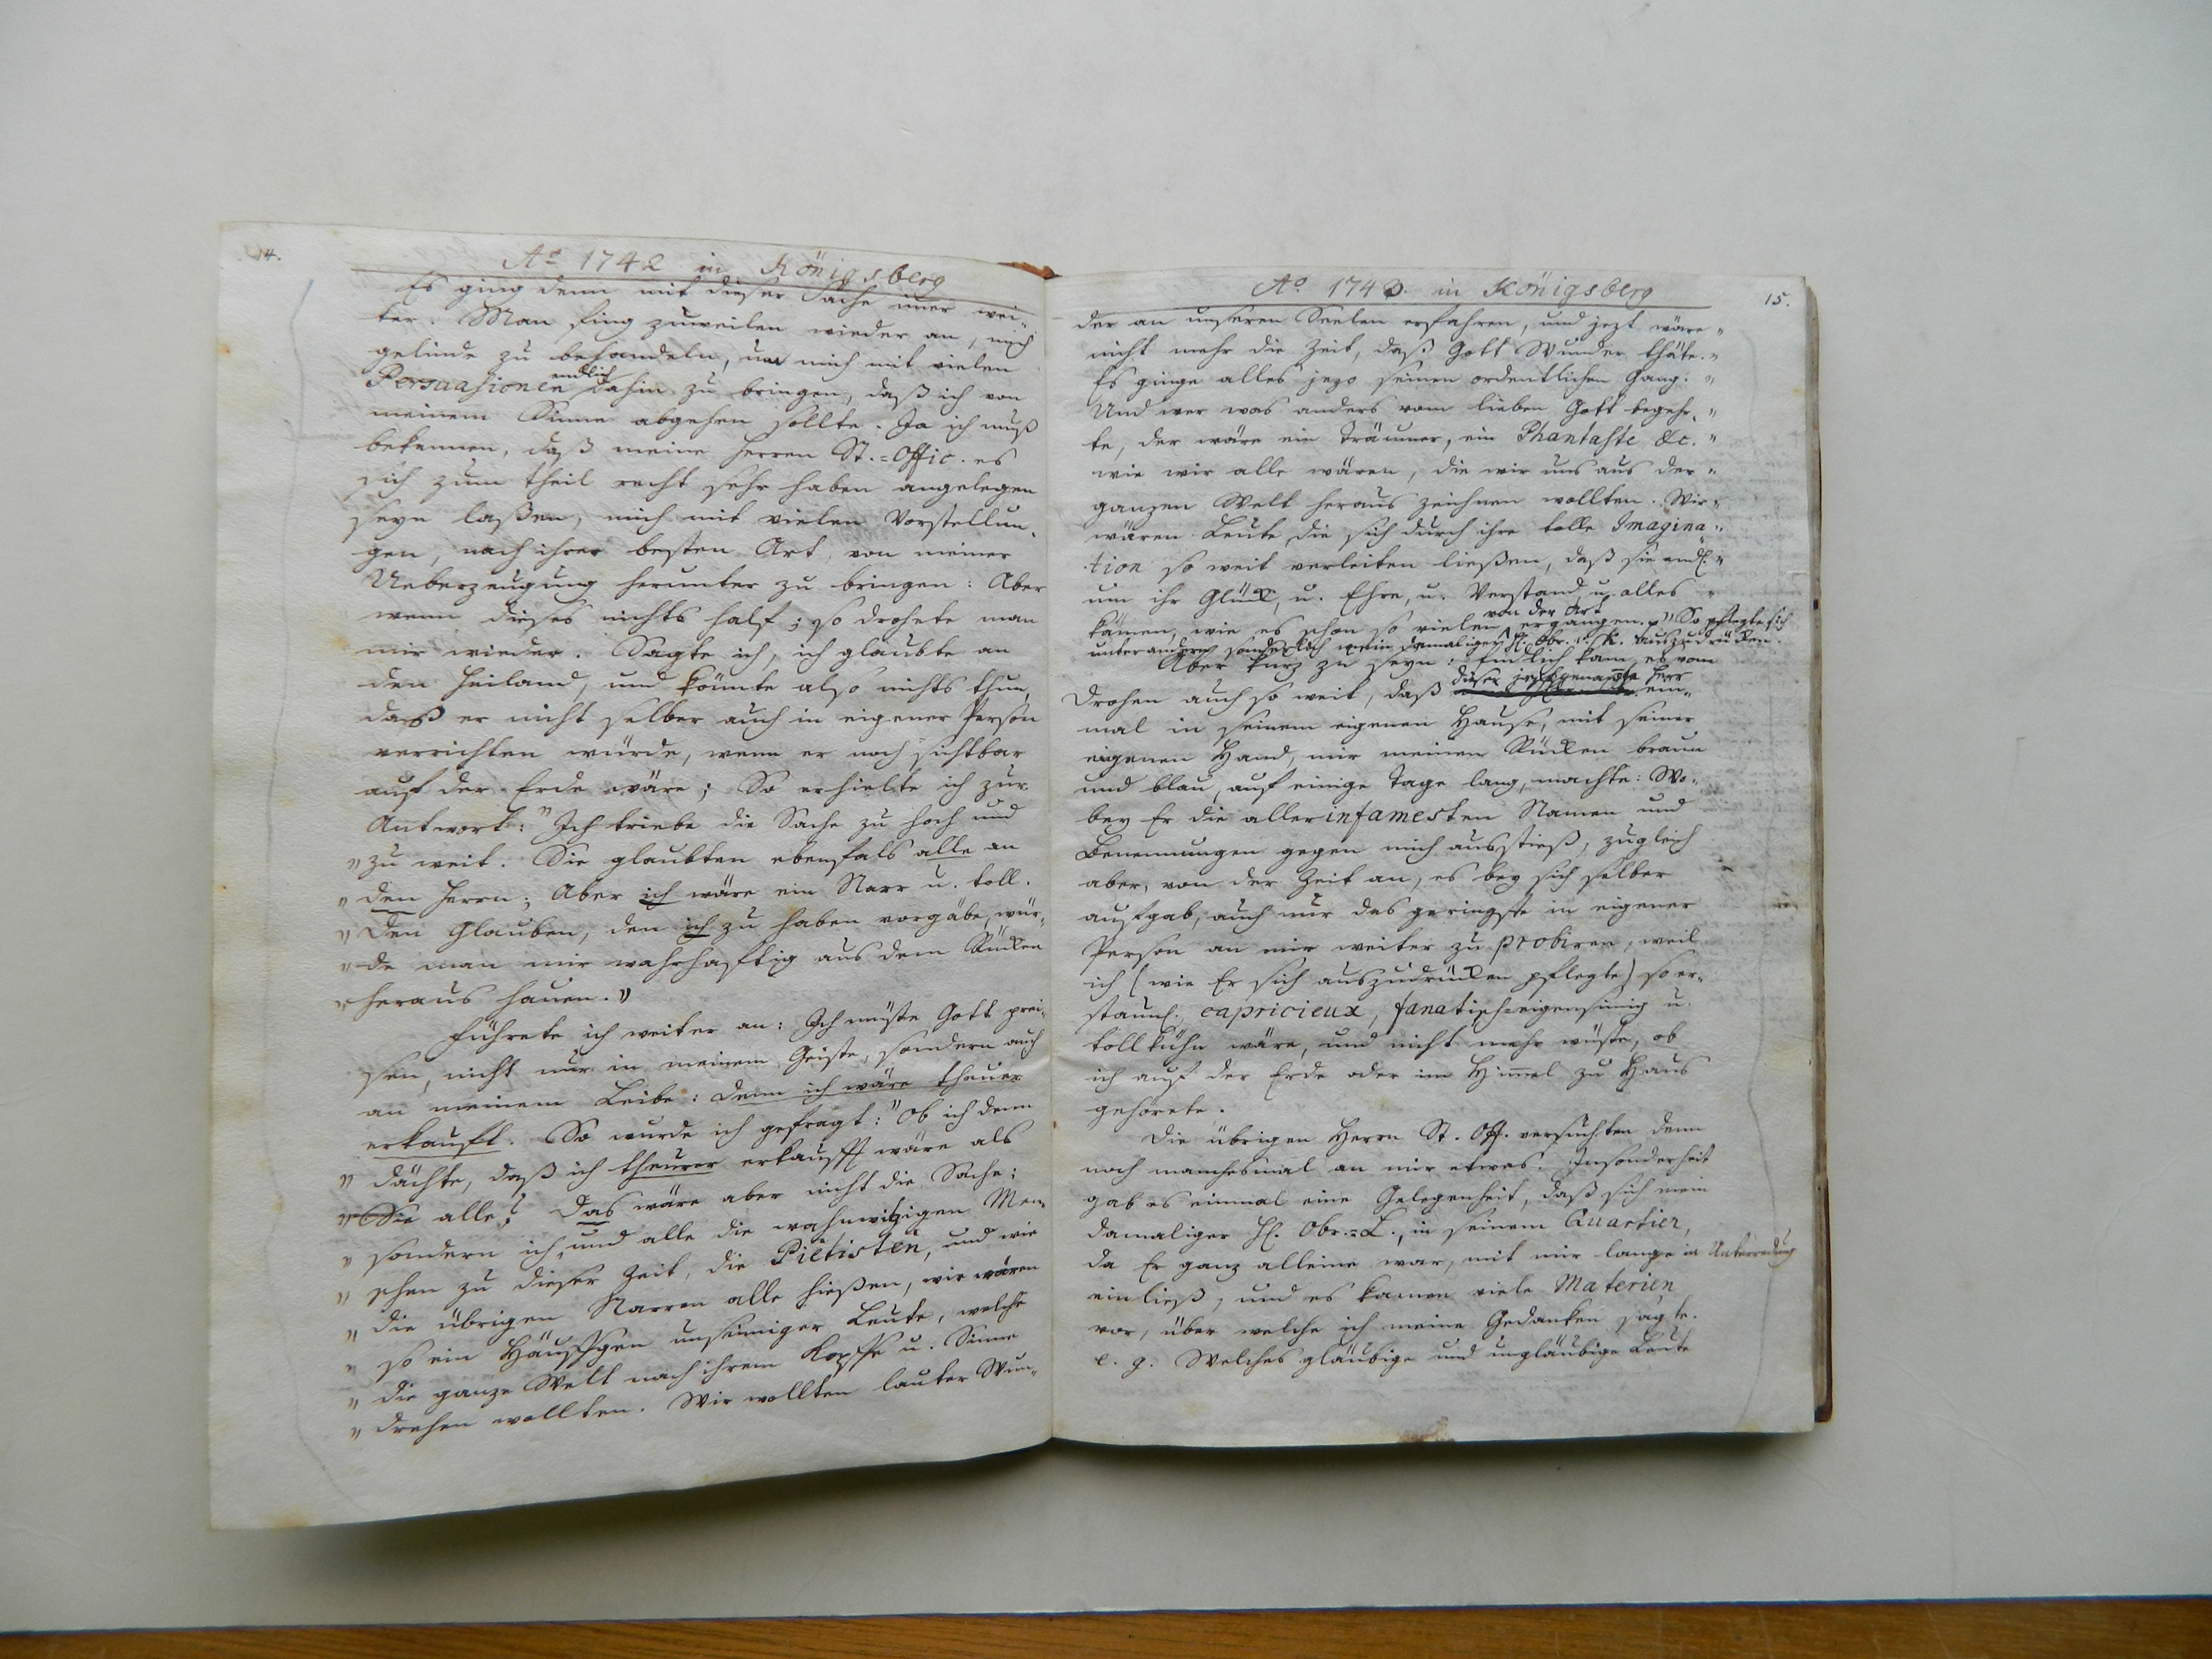 14.
Aō 1742 in Königsberg
Es ging denn mit dieser Sache im̄er wei-
ter. Man fing zuweilen wieder an, mich
gelinde zu behandeln, um mich mit vielen
endlich
Persuasionen dahin zu bringen, daß ich von
meinem Sinne abgehen sollte. Ja ich muß
bekennen, daß meine Herren St.=Offic. es
sich zum theil recht sehr haben angelegen
seyn laßen, mich mit vielen Vorstellun-
gen, nach ihrer besten Art, von meiner
Ueberzeugung herunter zu bringen: Aber
wenn dieses nichts half; so drohete man
mir wieder. Sagte ich, ich glaubte an
den Heiland, und könnte also nichts thun,
daß er nicht selber auch in eigener Person
verrichten würde, wenn er noch sichtbar
auf der Erde wäre; So erhielte ich zur
Antwort: "Ich triebe die Sache zu hoch und
" zu weit. Sie glaubten ebenfals alle an
" den Herrn; Aber ich wäre ein Narr u. toll.
" Den Glauben, den ich zu haben vorgäbe, wür-
" de man mir wahrhaftig aus dem Rücken
" heraus hauen."
Führete ich weiter an: Ich müste Gott prei-
sen, nicht nur in meinem Geiste, sondern auch
an meinem Leibe: denn ich wäre theuer
erkauft. So wurde ich gefragt: "Ob ich denn
" dächte, daß ich theurer erkaufft wäre als
" Sie alle? Das wäre aber nicht die Sache;
" sondern ich, und alle die wahnwitzigen Men-
" schen zu dieser Zeit, die Pietisten, und wie
" die übrigen Narren alle hießen, wir wären
" so ein Häuffgen unsinniger Leute, welche
" die ganze Welt nach ihrem Kopffe u. Sinne
" drehen wollten. Wir wollten lauter Wun-
15.
Aō 1743. in Königsberg
der an unseren Seelen erfahren, und jezt wäre "
nicht mehr die Zeit, daß Gott Wunder thäte. "
Es ginge alles jezo seinen ordentlichen Gang. "
Und wer was anders vom lieben Gott begehr- "
te, der wäre ein Träumer, ein Phantaste &c. "
wie wir alle wären, die wir uns aus der "
ganzen Welt heraus zeichnen wollten. Wir "
wären Leute die sich durch ihre tolle Imagina- "
tion so weit verleiten ließen, daß sie endl. "
um ihr Glück, u. Ehre, u. Verstand, u. alles "
von der Art
kämen, wie es schon so vielen ergangen." So pflegte sich
unter andern sonderlich mein damaliger H. Obr. v. K. auszudrücken.
Aber kurz zu seyn: Endlich kam es vom
dieser jeztgenannte Herr
Drohen auch so weit, daß ein-
mal in seinem eigenen Hause, mit seiner
eigenen Hand, mir meinen Rücken braun
und blau, auf einige Tage lang, machte: Wo-
bey Er die aller infamesten Namen und
Benennungen gegen mich ausstieß, zugleich
aber, von der Zeit an, es bey sich selber
aufgab, auch nur das geringste in eigener
Person an mir weiter zu probiren, weil
ich (wie Er sich auszudrücken pflegte) so er-
staunl. capricieux, fanatisch=eigensinnig u.
tollkühn wäre, und nicht mehr wüste, ob
ich auf der Erde oder im Him̄el zu Haus
gehörete.
Die übrigen Herrn St. Off. versuchten denn
noch manchesmal an mir etwas. Insonderheit
gab es einmal eine Gelegenheit, daß sich mein
damaliger H. Obr.=L., in seinem Quartier,
da Er ganz alleine war, mit mir lange in Unterredung
einließ, und es kamen viele Materien
vor, über welche ich meine Gedanken sagte.
e. g. Welches gläubige und ungläubige Leute